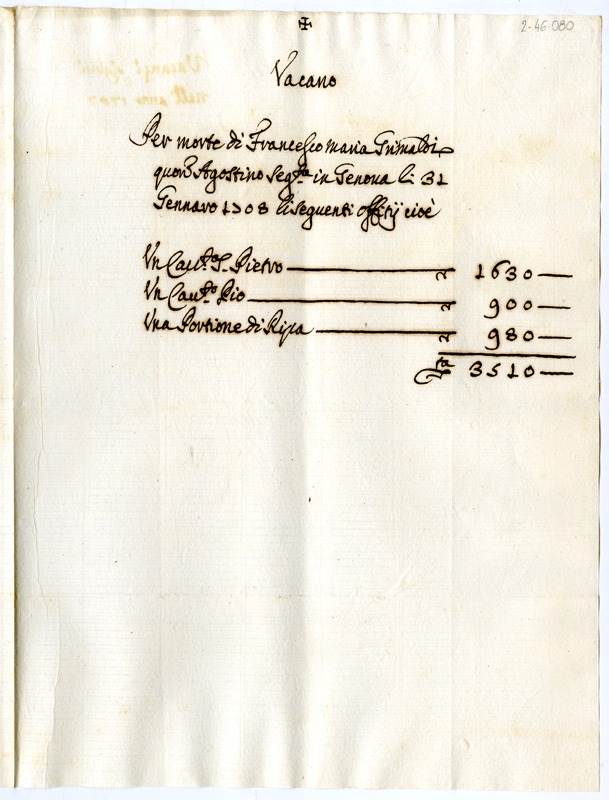 2-46-080
Vacano
Per morte di Francesco Maria Grimaldi
quon Agostino seg.ta in Genova li 31
Gennaro 1708 li seguenti offitij cioè
Un Cau.to S. Pietro 1630
Un Cau.to Pio 900
Una Portione di Ripa 980
3510